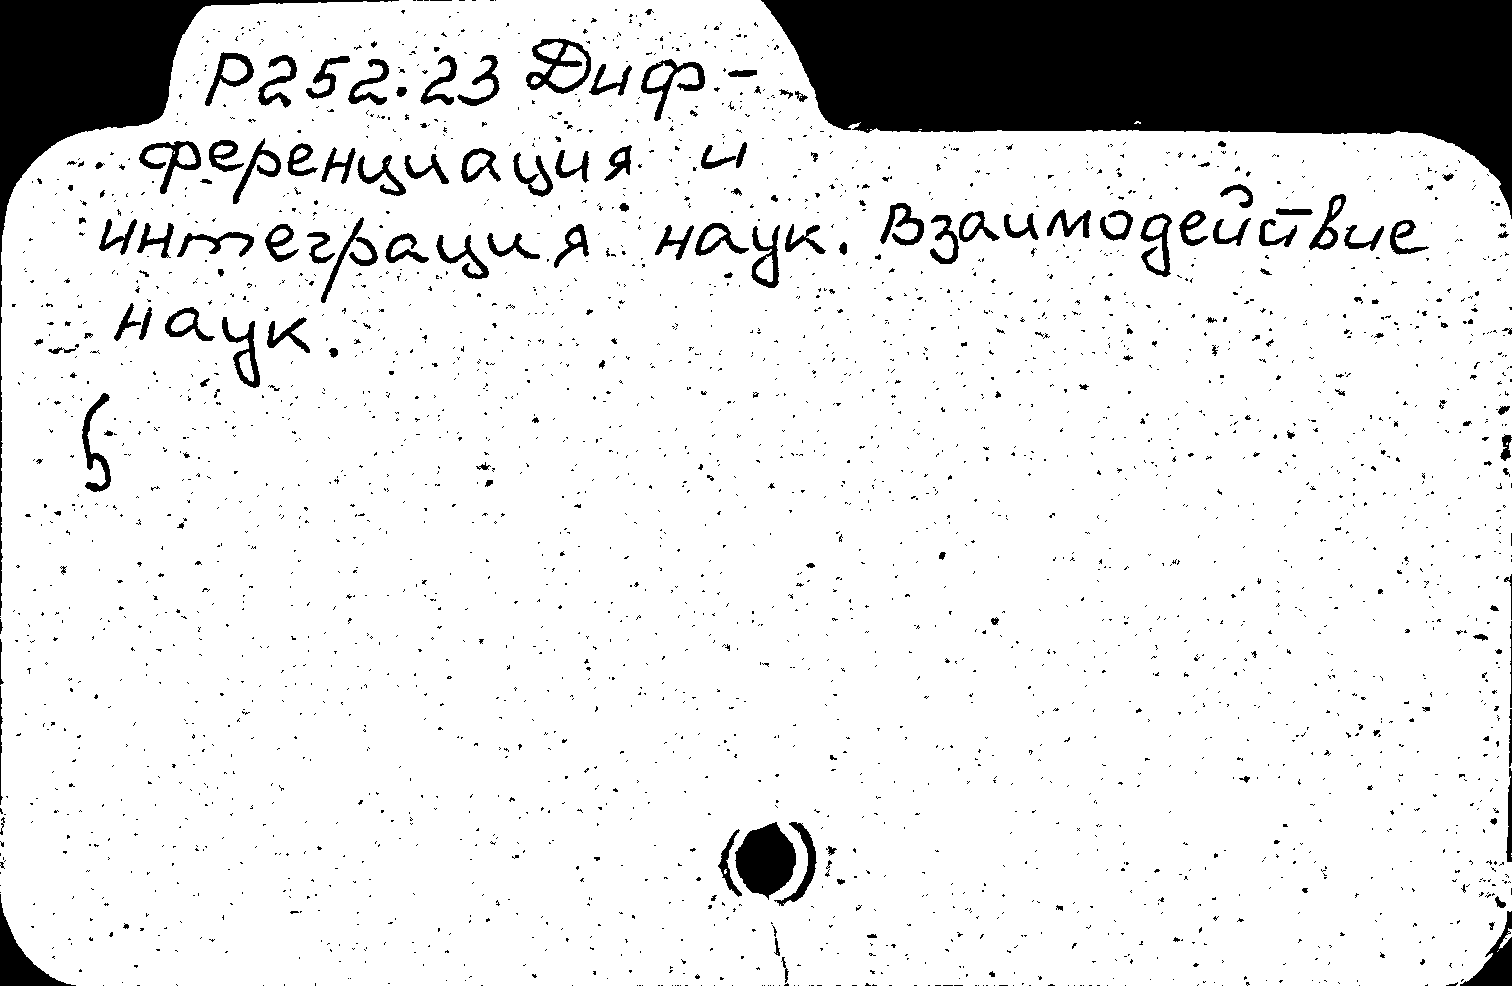 Р252.23 Диф-
ференциация и
интеграция наук. Взаимодействие
наук.